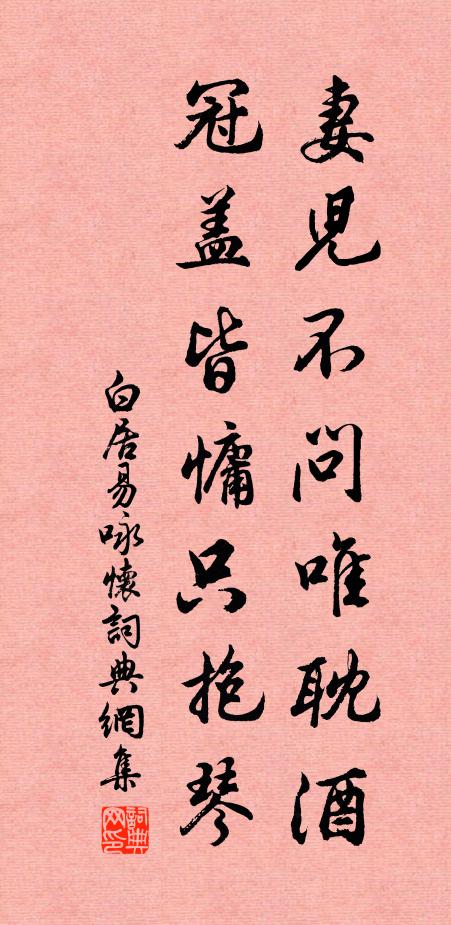 妻児不问唯耽酒
冠盖皆慵只抱琴
白居易咏懷詞典網集
詞典网印